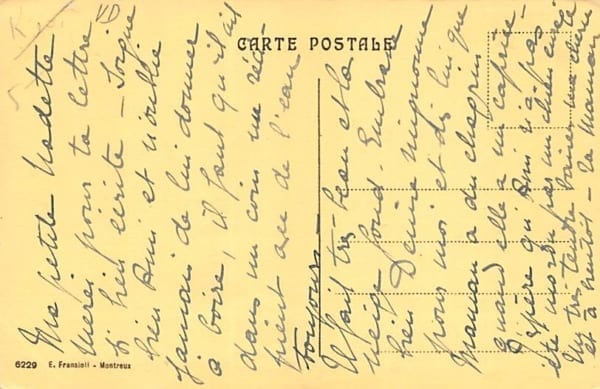 VD
CARTE POSTALE
Ma petite Nadette
Merci pour ta lettre
si bien écrite - Soigne
bien Ami et n'oublie
jamais de lui donner
à boire, il faut qu'il ait
dans un coin un réci-
pient avec de l'eau
toujours -
Il fait très beau et la
neige fond - Embrasse
bien Denise mignonne
pour moi et dis lui que
Maman a du chagrin
quand elle a un caprice -
J'espère qu'Ami n'a pas
été mordu par un chien
Un très tendre baiser ma chérie
et à bientôt - ta Maman
6229 E. Fransioli - Montreux